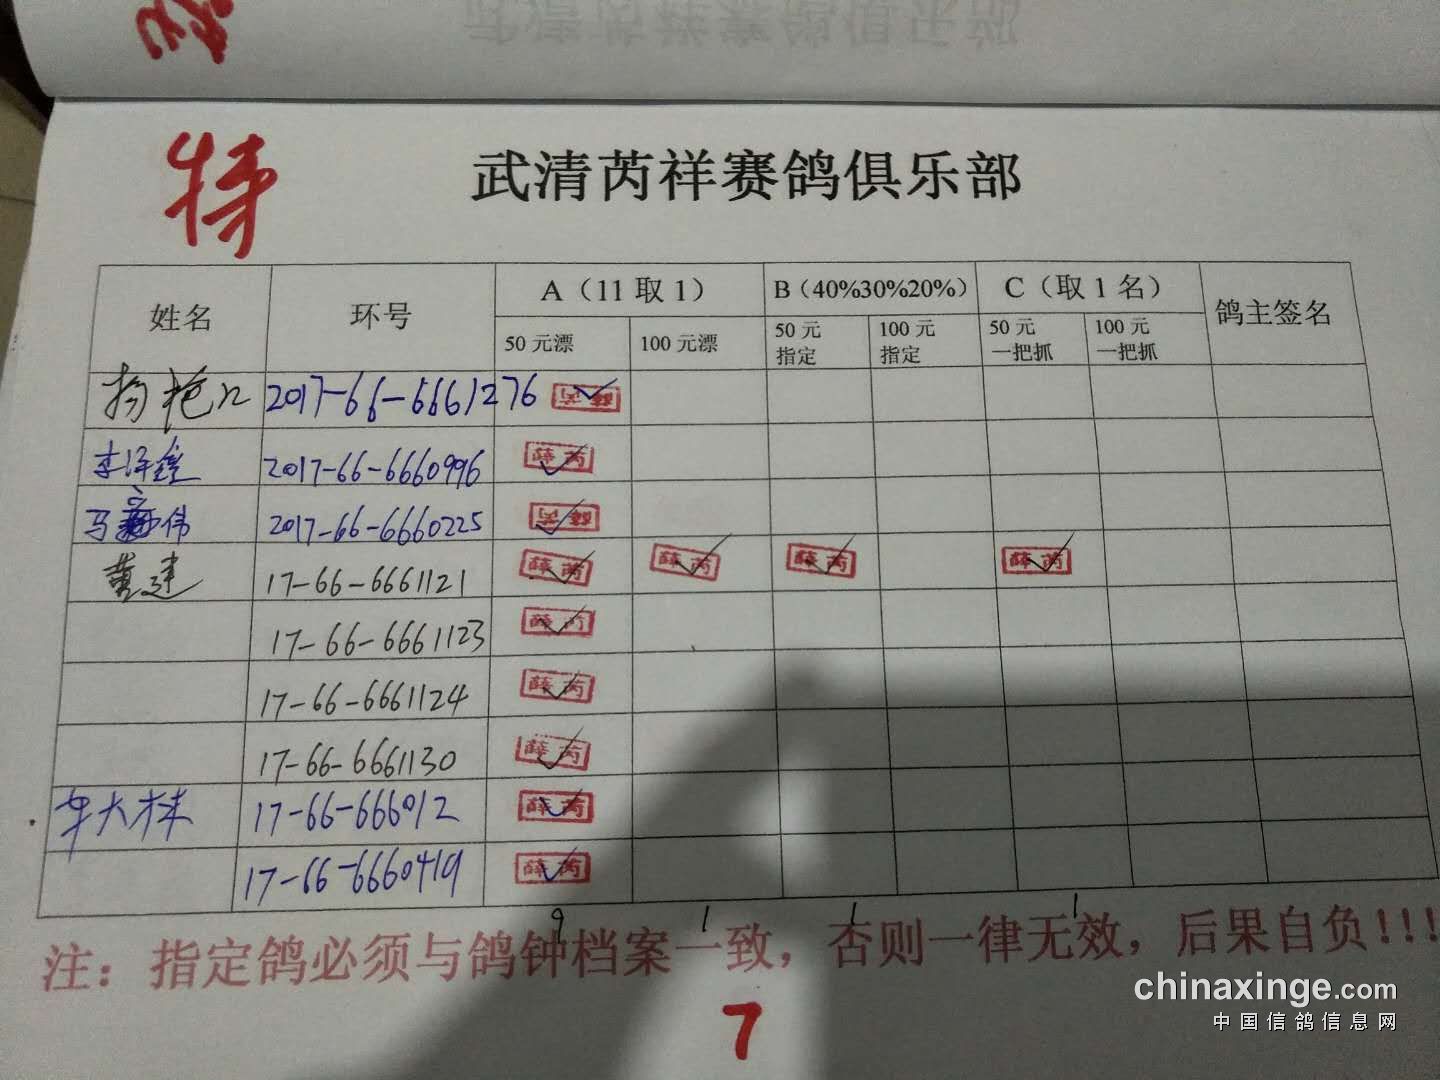 特
武清芮祥赛鸽俱乐部
姓名 环号 A（11取1） B（40%30%20%） C（取1名） 鸽主签名
50元漂 100元漂 50元指定 100元指定 50元一把抓 100元一把抓
2017-66-6661276 薛芮
李泽鑫 2017-66-6660996 薛芮
马宏伟 2017-66-6660225 薛芮
黄建 17-66-6661121 薛芮 薛芮 薛芮 薛芮
17-66-6661123 薛芮
17-66-6661124 薛芮
17-66-6661130 薛芮
牟大林 17-66-666012 薛芮
17-66-6660419 薛芮
9 1 1 1
注：指定鸽必须与鸽钟档案一致，否则一律无效，后果自负!!!
7
chinaxinge.com
中国信鸽信息网